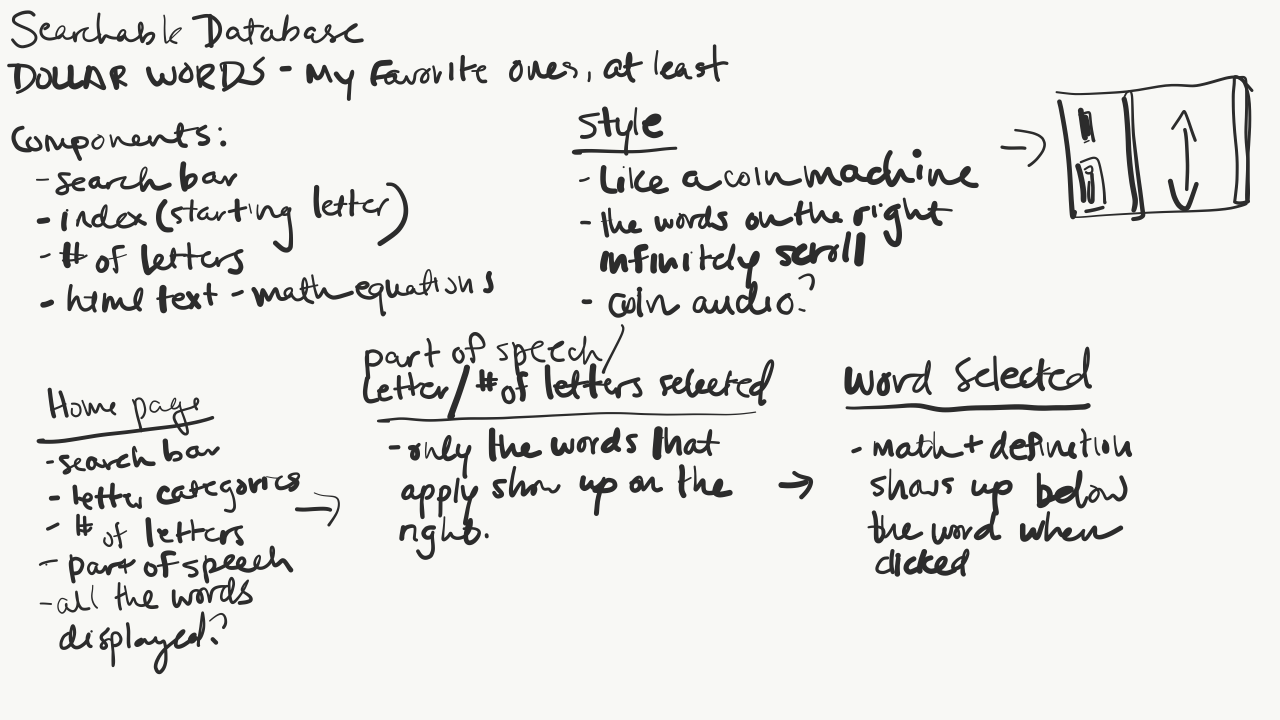 Searchable Database
DOLLAR WORDS - My Favorite ones, at least
Components:
- search bar
- index (starting letter)
- # of letters
- html text - math equations
Style
- Like a coin machine
- the words on the right
infinitely scroll
- coin audio?
Home page
- search bar
- letter categories
- # of letters
- part of speech
- all the words
displayed?
part of speech/
Letter/# of letters selected
- only the words that
apply show up on the
right.
Word Selected
- math + definition
shows up below
the word when
clicked